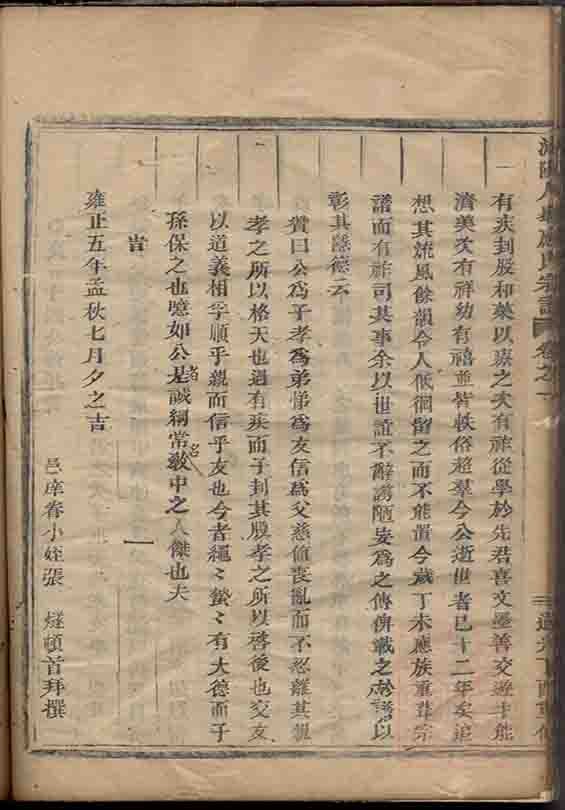 有疾刲股和藥以療之次有祚從學於先君喜文墨善交遊才能
濟美次有祥幼有禧並皆軼俗超羣今公逝世者已十二年矣追
想其流風餘韻令人低徊留之而不能置今歲丁未應族重葺宗
譜而有祚司其事余以世誼不辭譾陋妄爲之傳俾載之於譜以
彰其隱德云
贊曰公爲子孝爲弟悌爲友信爲父慈值喪亂而不忍離其親
孝之所以格天也遇有疾而子刲其股孝之所以啓後也交友
以道義相孚順乎親而信乎友也今者繩々蟄々有大德而子
孫保之也噫如公是者誠綱常敎名中之人傑也夫
吉
雍正五年孟秋七月夕之吉
邑庠眷小姪張 燧頓首拜撰